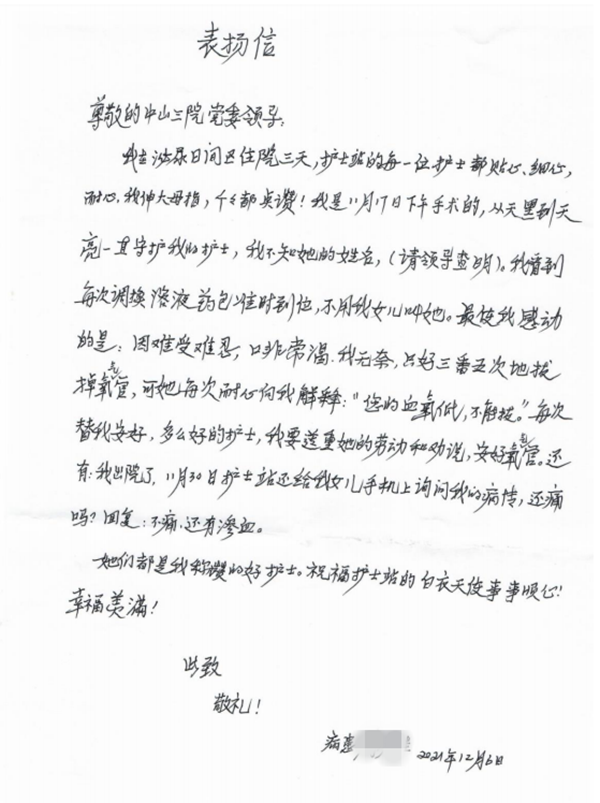 表扬信
尊敬的中山三院党委领导:
我在泌尿日间区住院三天,护士站的每一位护士都贴心、细心,
耐心,我伸大母指,个个都点讚!我是11月17日下午手术的,从天黑到天
亮一直守护我的护士,我不知她的姓名,(请领导查明)。我看到
每次调换溶液药包准时到位,不用我女儿叫她。最使我感动
的是:因难受难忍,口非常渴.我无奈,只好三番五次地拔
掉氧气管,可她每次耐心向我解释:"您的血氧低,不能拔。"每次
替我安好,多么好的护士,我要尊重她的劳动和劝说,安好氧气管。还
有:我出院了,11月30日护士站还给我女儿手机上询问我的病情,还痛
吗?回复:不痛.还有渗血。
她们都是我称讚的好护士。祝福护士站的白衣天使事事顺心!
幸福美满!
此致
敬礼!
病患 2021年12月6日